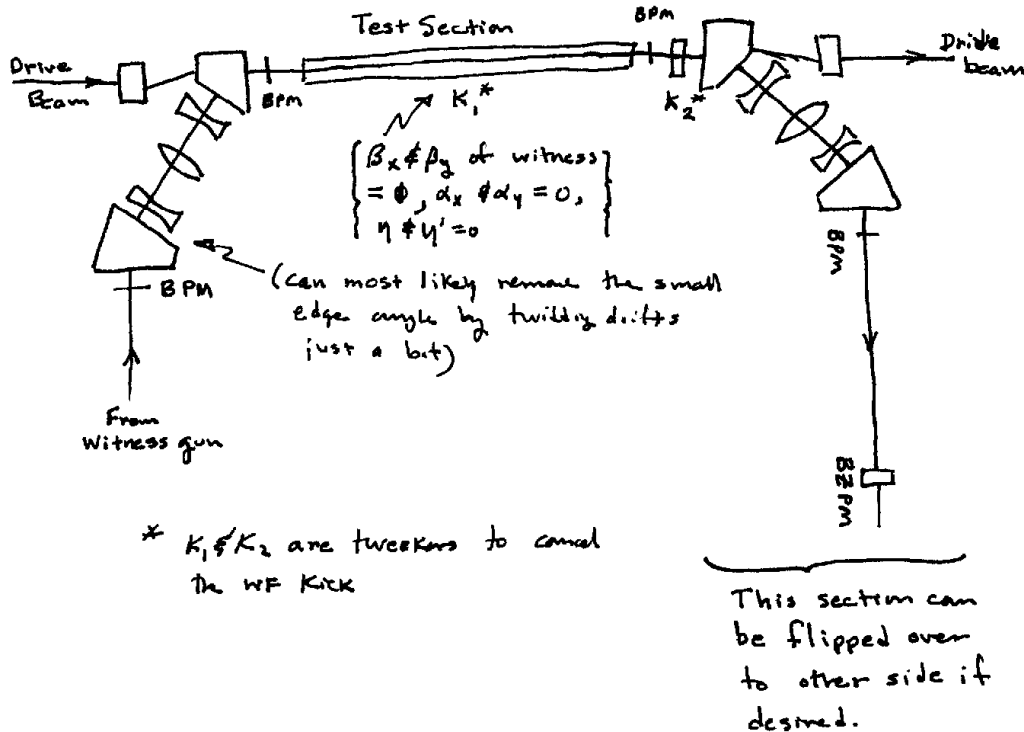 Test Section
BPM
Drive
Beam
Drive
beam
BPM
K₁*
K₂*
{ βx & βy of witness
= ϕ, αx & αy = 0,
η & η' = 0 }
BPM
BPM
(Can most likely remove the small
edge angle by twiddling drifts
just a bit)
From
Witness gun
BZPM
* K₁ & K₂ are tweekers to cancel
the WF Kick
This section can
be flipped over
to other side if
desired.